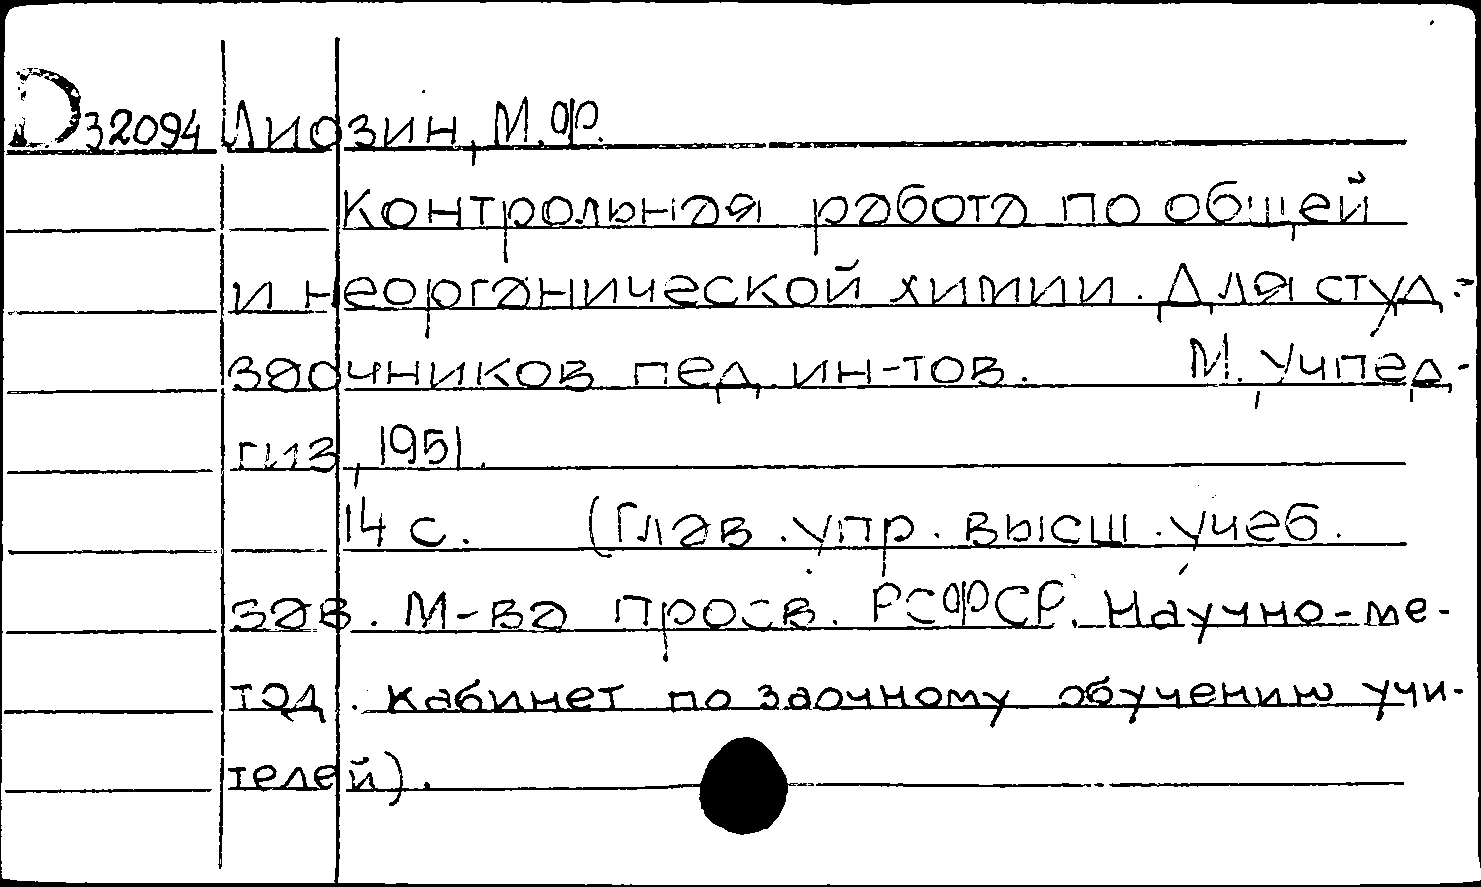 D 32094 Лиозин, М.Ф.
Контрольная работа по общей
и неорганической химии. Для студ.-
заочников пед. ин-тов. М. Учпед-
гиз, 1951.
14 с. (Глав. упр. высш. учеб.
зав. М-ва просв. РСФСР. Научно-ме-
тод. кабинет по заочному обучению учи-
телей).